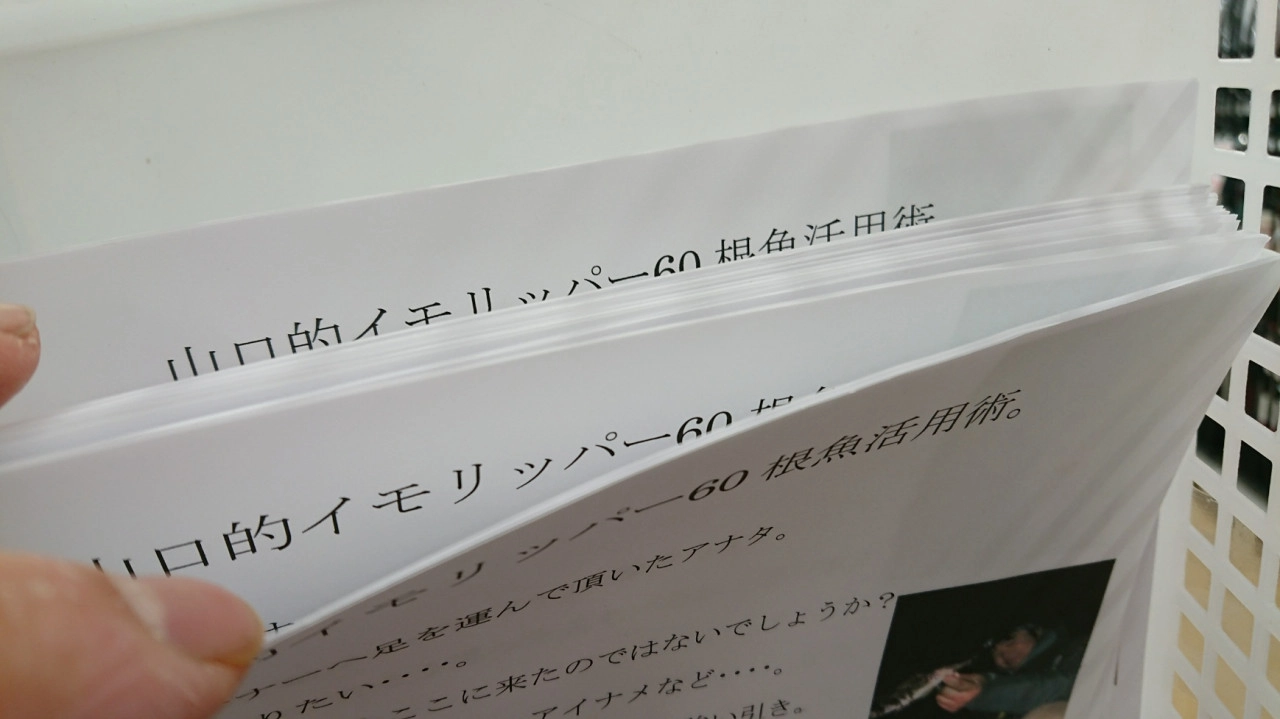 山口的イモリッパー60 根魚活用術
山口的イモリッパー60 根
イモリッパー60 根魚活用術。
ナーへ足を運んで頂いたアナタ。
りたい・・・・。
ここに来たのではないでしょうか?
アイナメなど・・・・。
強い引き。